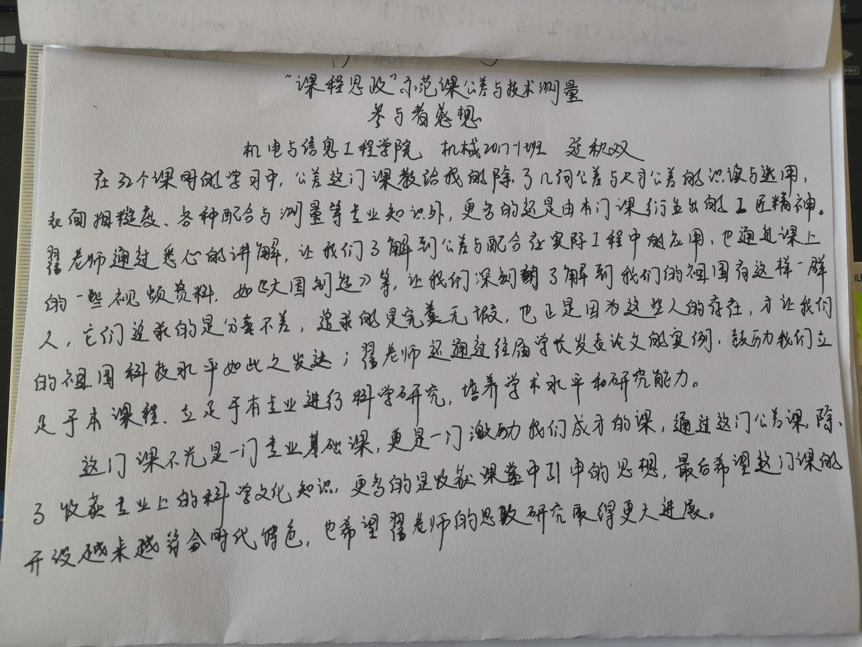 “课程思政”示范课公差与技术测量
参与者感想
机电与信息工程学院 机械2017-1班 延秋双
在32个课时的学习中，公差这门课教给我的除了几何公差与尺寸公差的识读与选用，
表面粗糙度、各种配合与测量等专业知识外，更多的还是由本门课衍生出的工匠精神。
翟老师通过悉心的讲解，让我们了解到公差与配合在实际工程中的应用，也通过课上
的一些视频资料，如《大国制造》等，让我们深刻了解到我们的祖国有这样一群
人，它们追求的是分毫不差，追求的是完美无瑕，也正是因为这些人的存在，才让我们
的祖国科技水平如此之发达；翟老师还通过往届学长发表论文的实例，鼓励我们立
足于本课程、立足于本专业进行科学研究，培养学术水平和研究能力。
这门课不光是一门专业基础课，更是一门激励我们成才的课，通过这门公差课，除
了收获专业上的科学文化知识，更多的是收获课堂中引申的思想，最后希望这门课的
开设越来越符合时代特色，也希望翟老师的思政研究取得更大进展。